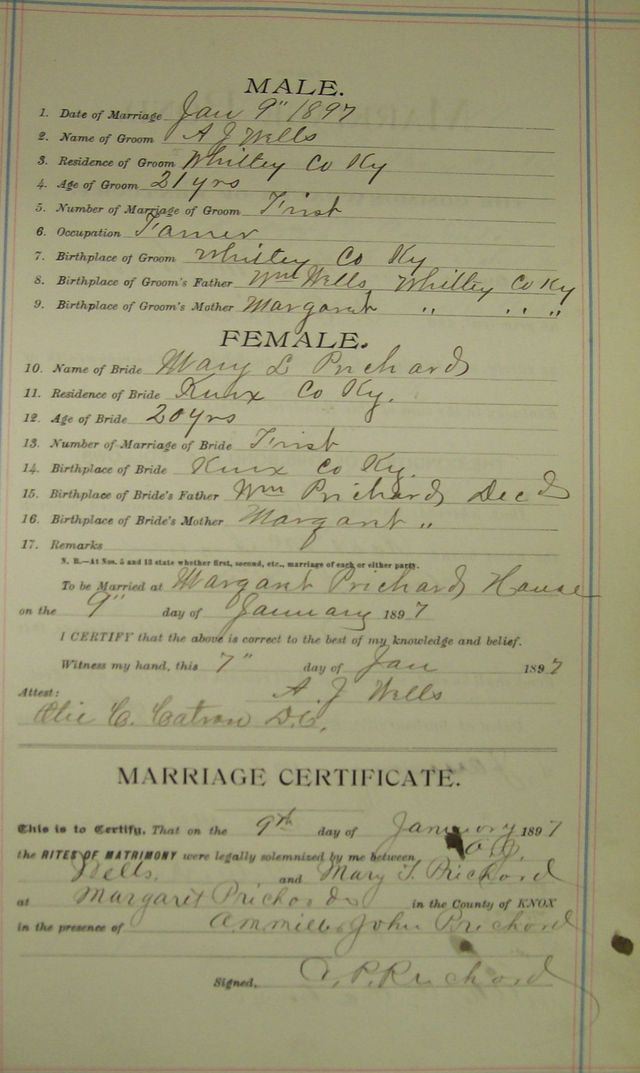 MALE.
1. Date of Marriage Jan 9" 1897
2. Name of Groom A J Wells
3. Residence of Groom Whitley Co Ky
4. Age of Groom 21 yrs
5. Number of Marriage of Groom First
6. Occupation Farmer
7. Birthplace of Groom Whitley Co Ky
8. Birthplace of Groom's Father Wm Wells Whitley Co Ky
9. Birthplace of Groom's Mother Margaret " " "
FEMALE.
10. Name of Bride Mary L Prichard
11. Residence of Bride Knox Co Ky.
12. Age of Bride 20 yrs
13. Number of Marriage of Bride First
14. Birthplace of Bride Knox Co Ky.
15. Birthplace of Bride's Father Wm Prichard Decd
16. Birthplace of Bride's Mother Margaret "
17. Remarks
N. B.—At Nos. 5 and 13 state whether first, second, etc., marriage of each or either party.
To be Married at Margaret Prichards House
on the 9" day of January 1897
I CERTIFY that the above is correct to the best of my knowledge and belief.
Witness my hand, this 7" day of Jan 1897
Attest: A. J Wells
C. Catron D.C.
MARRIAGE CERTIFICATE.
This is to Certify, That on the 9th day of January 1897
the RITES OF MATRIMONY were legally solemnized by me between
Wells. and Mary Prichard
at Margaret Prichards in the County of KNOX
in the presence of John Prichard
Signed, P. Prichard